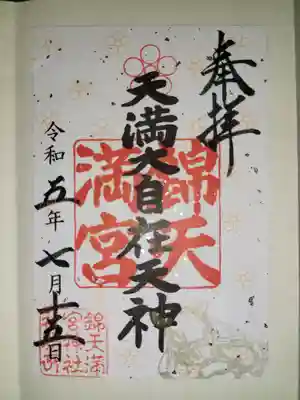 奉拝
天満大自在天神
錦天
満宮
令和五年七月十五日
錦天満
宮神社